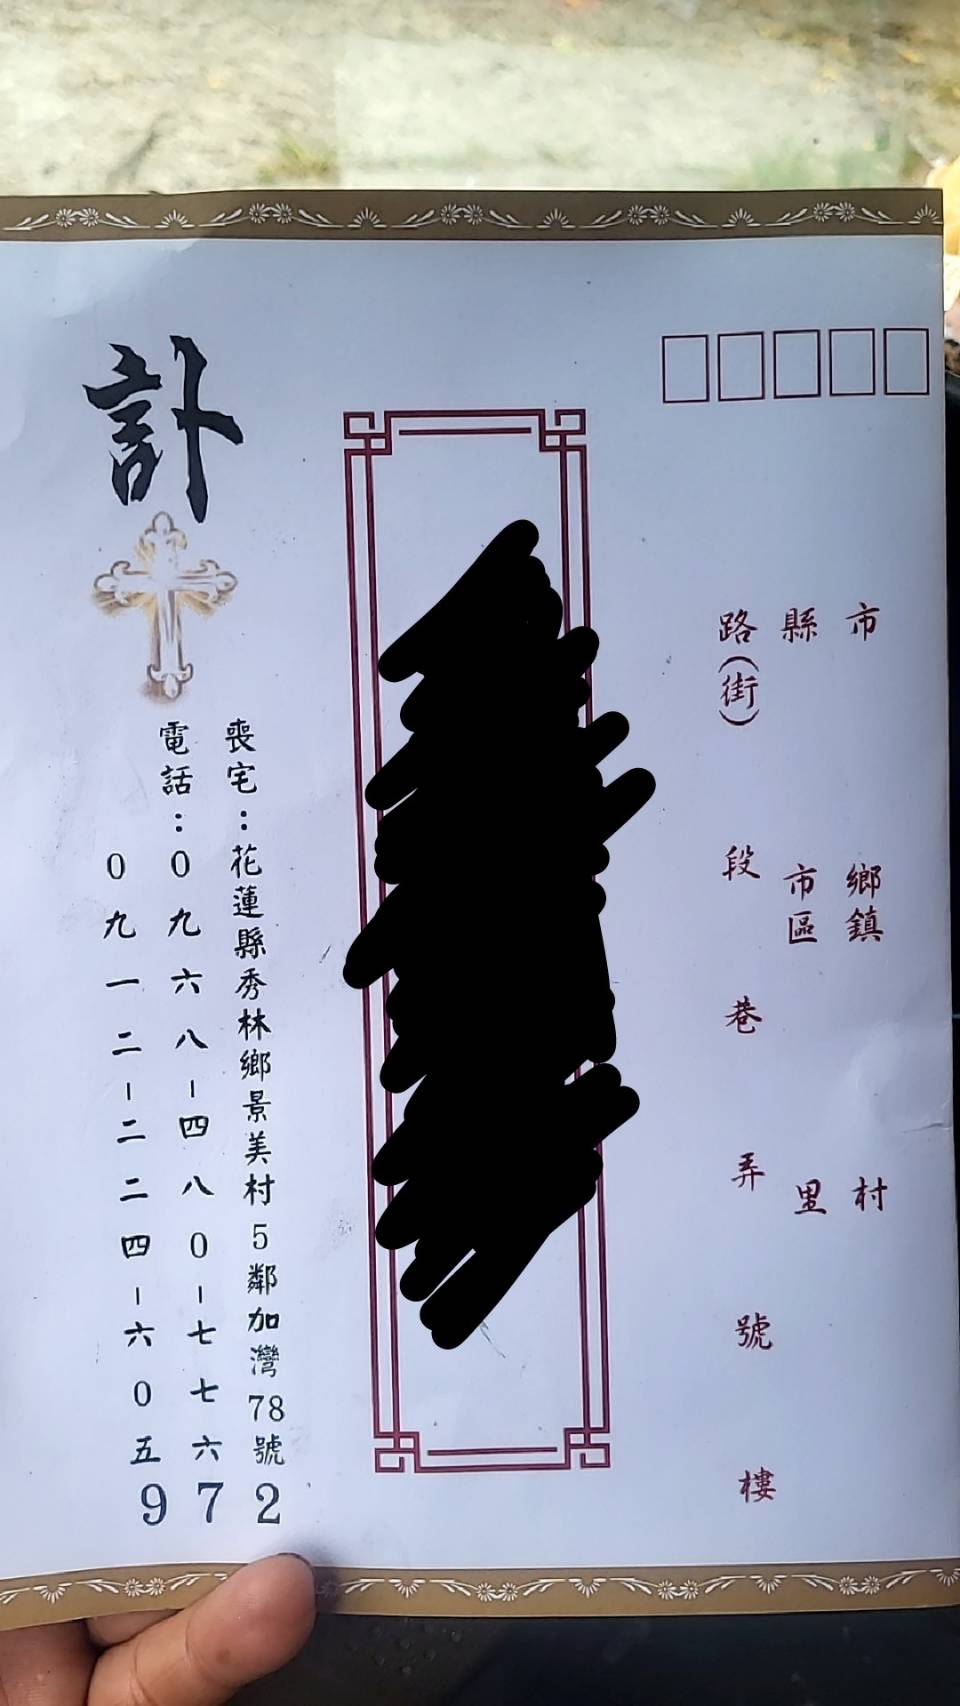 市 鄉鎮 村
縣 市區 里
路(街) 段 巷 弄 號 樓
訃
喪宅：花蓮縣秀林鄉景美村5鄰加灣78號
電話：0九六八-四八0-七七六
0九一二-二二四-六0五
972